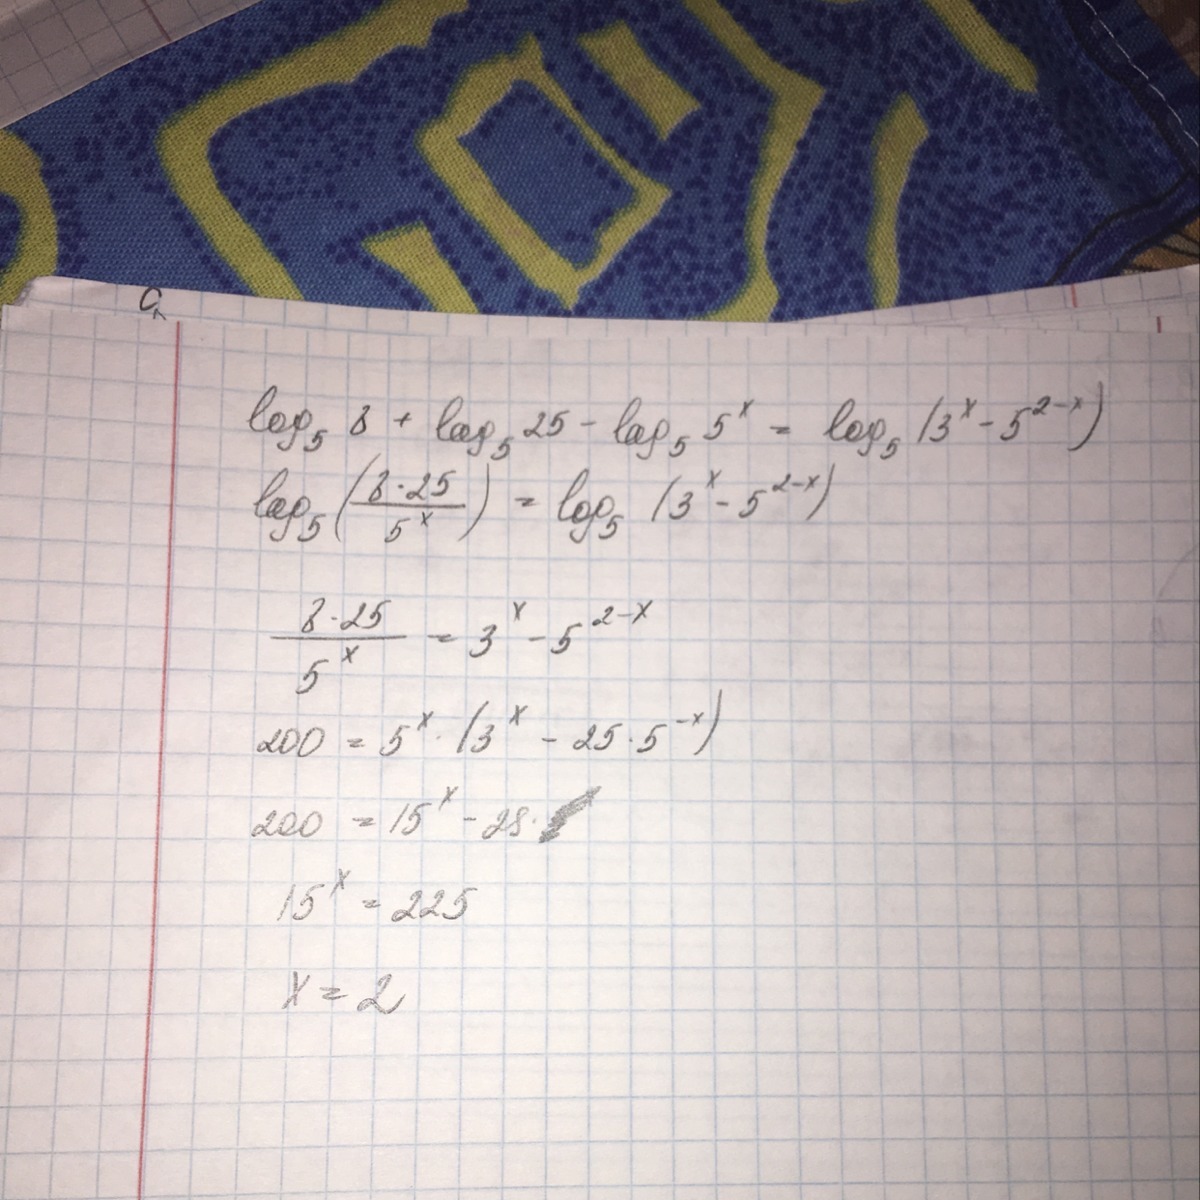 log₅ 8 + log₅ 25 - log₅ 5ˣ = log₅ (3ˣ - 5²⁻ˣ)
log₅ (8·25 / 5ˣ) = log₅ (3ˣ - 5²⁻ˣ)
8·25 / 5ˣ = 3ˣ - 5²⁻ˣ
200 = 5ˣ · (3ˣ - 25·5⁻ˣ)
200 = 15ˣ - 25·
15ˣ = 225
x = 2